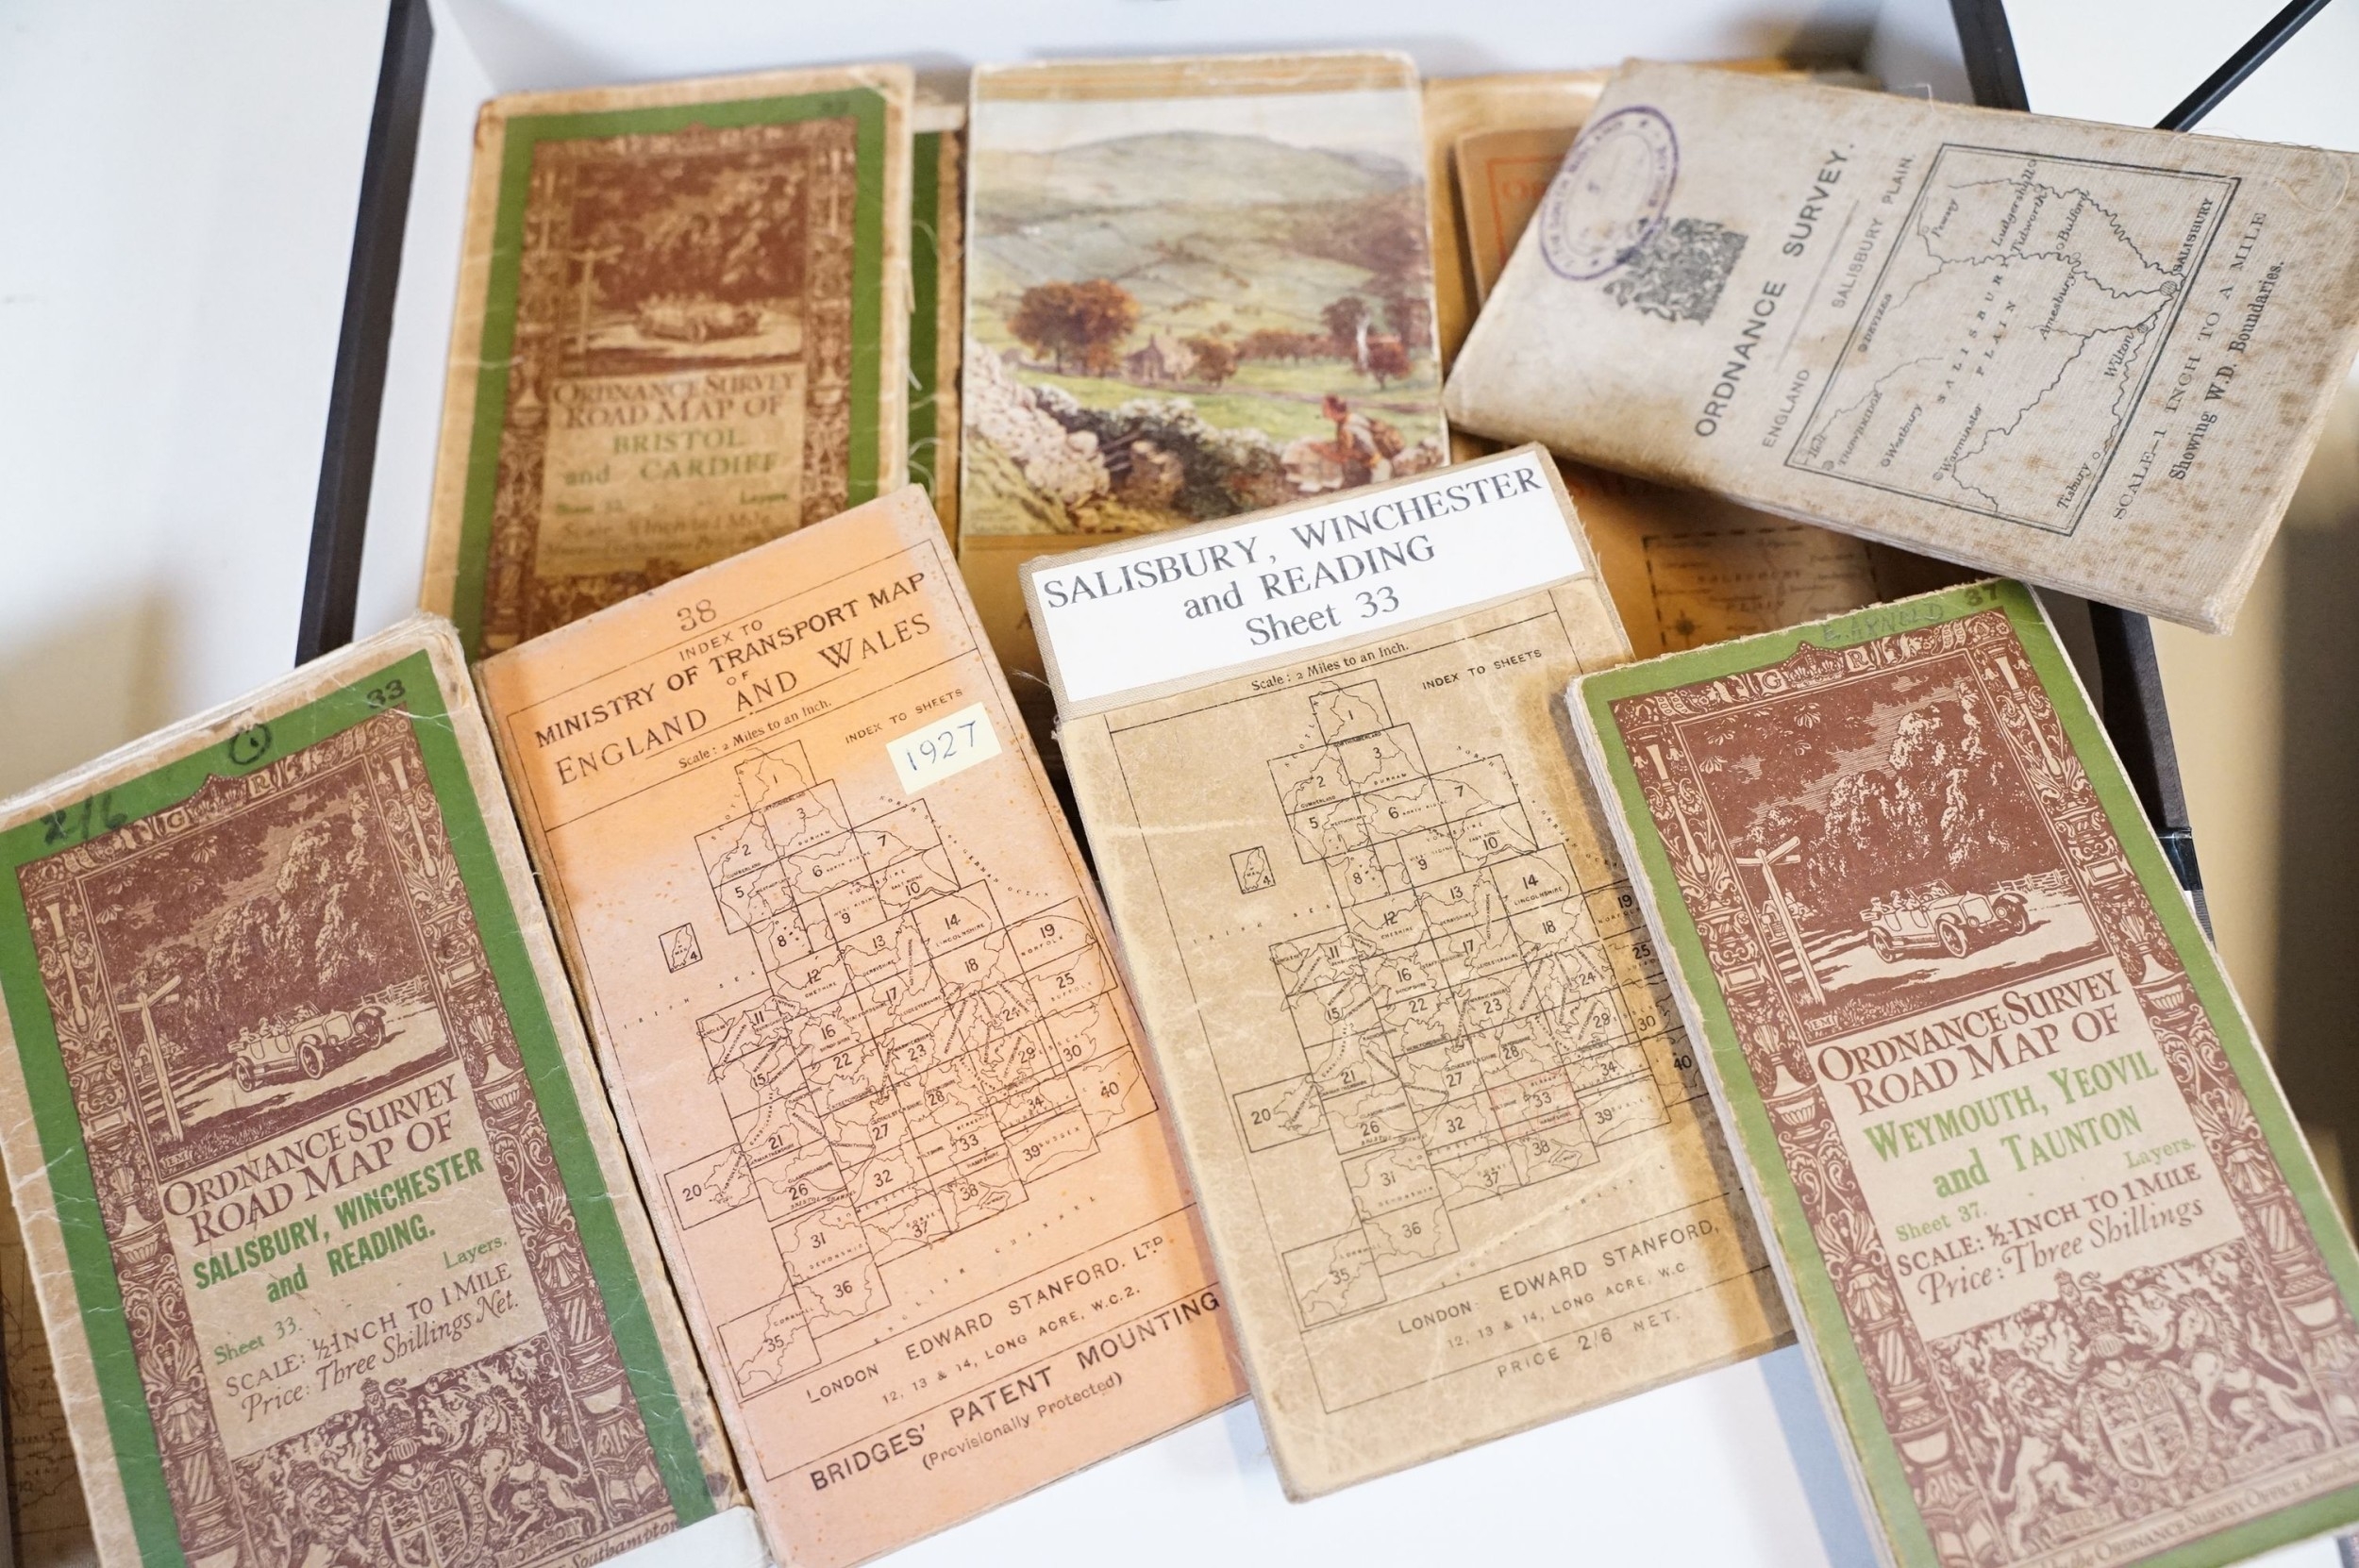 ORDNANCE SURVEY
ROAD MAP OF
BRISTOL
and CARDIFF
Layers.
ORDNANCE SURVEY.
ENGLAND - SALISBURY PLAIN.
Pewsey
Ludgershall
Tidworth
Bulford
Amesbury
SALISBURY
DEVIZES
SALISBURY
PLAIN
Wilton
TROWBRIDGE
Westbury
Warminster
Tisbury
SCALE-1 INCH TO A MILE
Showing W.D. Boundaries.
33
1
2/6
G R
ORDNANCE SURVEY
ROAD MAP OF
SALISBURY, WINCHESTER
and READING.
Layers.
Sheet 33.
SCALE: ½-INCH TO 1 MILE
Price: Three Shillings Net.
Southampton
38
INDEX TO
MINISTRY OF TRANSPORT MAP
OF
ENGLAND AND WALES
Scale: 2 Miles to an Inch.
INDEX TO SHEETS
1927
1
2 3
5 6 7
4 8 9 10
12 13 14
11 16 17 18 19
15 22 23 24 25
20 21 27 28 29 30
26 32 33 34 40
31 37 38 39
36
35
IRISH SEA
LONDON EDWARD STANFORD. LTD
12, 13 & 14, LONG ACRE, W.C.2.
BRIDGES' PATENT MOUNTING
(Provisionally Protected)
SALISBURY, WINCHESTER
and READING
Sheet 33
Scale: 2 Miles to an Inch.
INDEX TO SHEETS
1
2 3
5 6 7
4 8 9 10
12 13 14
11 16 17 18 19
15 22 23 24 25
20 21 27 28 29 30
26 32 33 34 40
31 37 38 39
36
35
IRISH SEA
LONDON: EDWARD STANFORD,
12, 13 & 14, LONG ACRE, W.C
PRICE 2/6 NET.
E. ARNOLD 37
G R
ORDNANCE SURVEY
ROAD MAP OF
WEYMOUTH, YEOVIL
and TAUNTON
Layers.
Sheet 37.
SCALE: ½-INCH TO 1 MILE
Price: Three Shillings
ORDNANCE SURVEY OFFICE